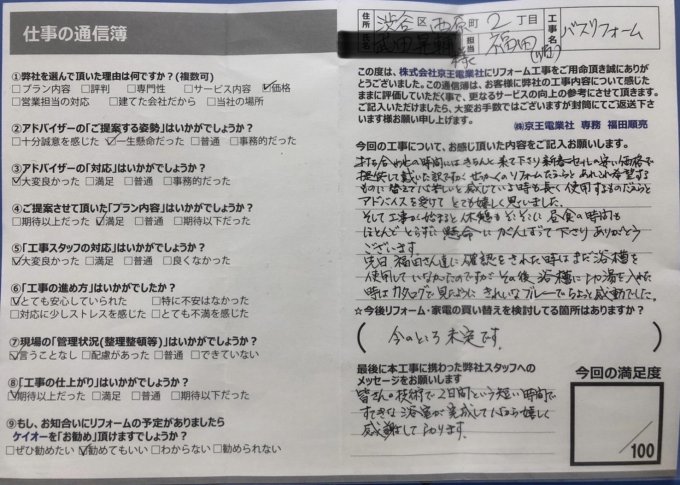 仕事の通信簿
①弊社を選んで頂いた理由は何ですか?(複数可)
□プラン内容 □評判 □専門性 □サービス内容 ☑価格
□営業担当の対応 □建てた会社だから □当社の場所
②アドバイザーの「ご提案する姿勢」はいかがでしょうか?
□十分誠意を感じた ☑一生懸命だった □普通 □事務的だった
③アドバイザーの「対応」はいかがでしょうか?
☑大変良かった □満足 □普通 □事務的だった
④ご提案させて頂いた「プラン内容」はいかがでしょうか?
□期待以上だった ☑満足 □普通 □期待以下だった
⑤「工事スタッフの対応」はいかがでしょうか?
☑大変良かった □満足 □普通 □良くなかった
⑥「工事の進め方」はいかがでしたか?
☑とても安心していられた □特に不安はなかった
□対応に少しストレスを感じた □とても不満を感じた
⑦現場の「管理状況(整理整頓等)」はいかがでしょうか?
☑言うことなし □配慮があった □普通 □できていない
⑧「工事の仕上がり」はいかがでしょうか?
☑期待以上だった □満足 □普通 □期待以下だった
⑨もし、お知合いにリフォームの予定がありましたら
ケイオーを「お勧め」頂けますでしょうか?
□ぜひ勧めたい ☑勧めてもいい □わからない □勧められない
住所 渋谷区西原町2丁目
氏名 様 担当 福田
工事名 バスリフォーム
この度は、株式会社京王電業社にリフォーム工事をご用命頂き誠にありが
とうございました。この通信簿は、お客様に弊社の工事内容について感じた
ままに評価していただく事で、更なるサービスの向上の参考にさせて頂きます。
ご記入いただけましたら、大変お手数ではございますが封筒にてご返送下さ
います様お願い申し上げます。
㈱京王電業社 専務 福田順亮
今回の工事について、お感じ頂いた内容をご記入お願いします。
打ち合わせの時間にはきちんと来て下さり新春セールの安い価格で
提供して戴いた訳ですが、せっかくのリフォームだからと あれこれ希望する
ものに替えて心苦しいと感じている時も長く使用するものだからと
アドバイスを受けて とても嬉しく思いました。
そして工事が始まると休憩もそこそこに 昼食の時間も
ほとんどとらずに 懸命にがんばって下さり ありがとう
ございます。
先日 福田さん達に確認をされた時はまだ浴槽を
使用していなかったのですが その後、浴槽にお湯を入れた
時はカタログで見たように きれいなブルーでちょっと感動でした。
☆今後リフォーム・家電の買い替えを検討してる箇所はありますか?
( 今のところ 未定です。 )
最後に本工事に携わった弊社スタッフへの
メッセージをお願いします
皆さんの技術で2日間という短い時間で
すてきな浴室が完成して心から嬉しく
感謝しております。
今回の満足度
/100